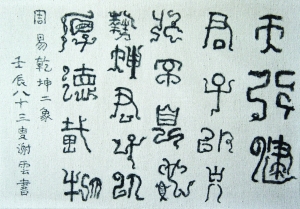 天行健
君子以自
強不息地
勢坤君子以
厚德載物
周易乾坤二象
壬辰八十三叟謝雲書